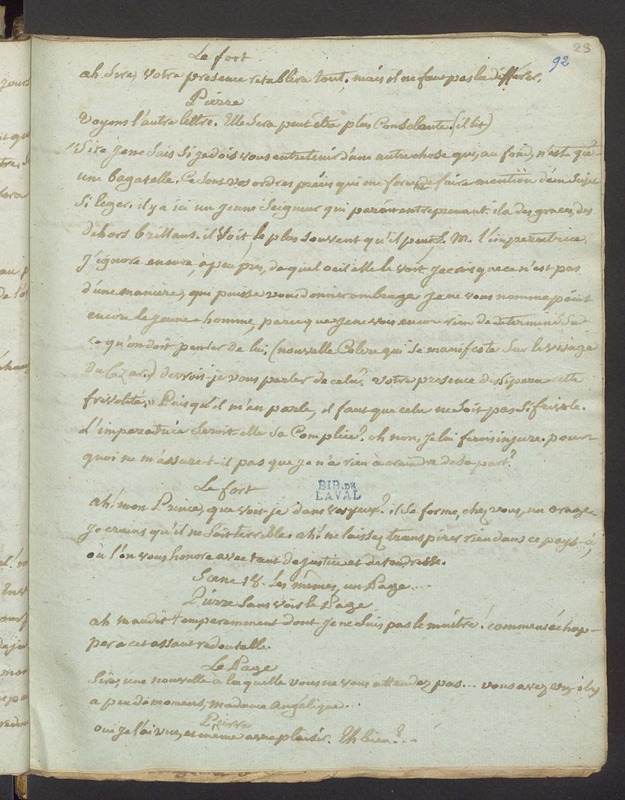 28
92
Le fort
ah Sire, votre presence retablira tout, mais il ne faut pas la différer.
Pierre
Voyons l'autre lettre. Elle Sera peut être plus Consolante. (il lit)
"Sire je ne Sais Si je dois vous entretenir d'une autre chose qui, au fond, n'est qu'
une bagatelle. Ce Sont vos ordres précis qui me forcent faire mention d'un Sujet
Si leger. il y a ici un jeune Seigneur qui paroit entreprenant. il a des graces, des
dehors brillans. il Voit, le plus Souvent qu'il peut, S. M. l'imperatrice.
J'ignore encore, à peu près, de quel oeil elle le voit. Je crois que ce n'est pas
d'une maniere, qui puisse vous donner ombrage. Je ne vous nomme point
encore le jeune homme, parce que je ne vois encore rien de determiné Sur
ce qu'on doit penser de lui, (nouvelle Colere qui Se manifeste Sur le visage
du Czar.) devrois-je vous parler de cela? Votre presence dissipera cette
frivolité." Puisqu'il m'en parle, il faut que cela ne Soit pas Si frivole.
L'imperatrice Seroit-elle Sa Complice? oh non, je lui ferois injure. pour
quoi ne m'assure-t-il pas que je n'ai rien à craindre de Sa part?
Le fort
ah! mon Prince, que vois-je dans vos yeux? il Se forme, chez vous, un orage
Je crains qu'il ne Soit terrible. ah! ne laissez transpirer rien dans ce pays-ci,
où l'on vous honore avec tant de justice et de tendresse.
BIB. DE
LAVAL
Scene 18. les mêmes, un Page...
Pierre Sans voir le Page
ah maudit temperamment dont je ne Suis pas le maître! comment échap-
per à cet assaut redoutable.
Le Page
Sire, une nouvelle à laquelle vous ne vous attendez pas... vous avez vu, il y
a peu de momens, Madame Angelique...
Pierre
oui je l'ai vue, et même avec plaisir. Eh bien?...